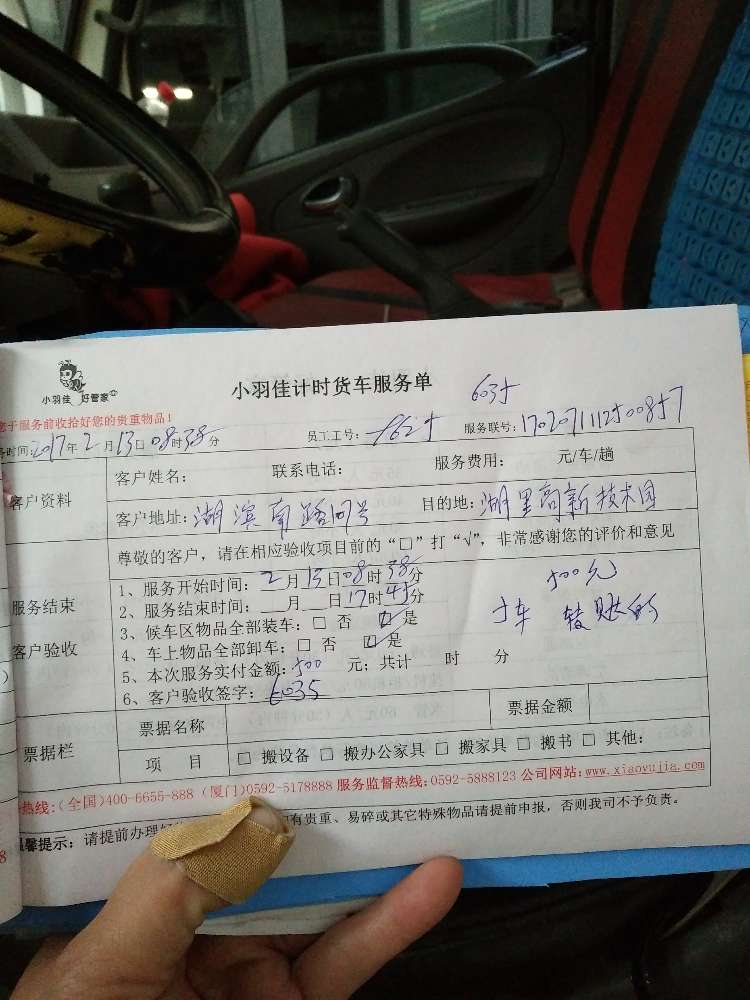 小羽佳 好管家
小羽佳计时货车服务单
6035
您于服务前收拾好您的贵重物品！
务时间:2017年2月13日08时38分 员工工号: 服务联号:
客户资料
客户姓名： 联系电话： 服务费用： 元/车/趟
客户地址: 湖滨南路 号 目的地: 湖里高新技术园
尊敬的客户，请在相应验收项目前的“□”打“√”，非常感谢您的评价和意见
服务结束
客户验收
1、服务开始时间: 2月13日08时38分
2、服务结束时间: __月__日17时45分
3、候车区物品全部装车: □ 否 ☑ 是
4、车上物品全部卸车: □ 否 ☑ 是
5、本次服务实付金额: 500 元; 共计 时 分
6、客户验收签字: 6035
500元
车 转账的
票据栏
票据名称 票据金额
项 目 □ 搬设备 □ 搬办公家具 □ 搬家具 □ 搬书 □ 其他:
热线:(全国)400-6655-888 (厦门)0592-5178888 服务监督热线:0592-5888123 公司网站:www.xiaoyujia.com
温馨提示: 请提前办理好 有贵重、易碎或其它特殊物品请提前申报，否则我司不予负责。